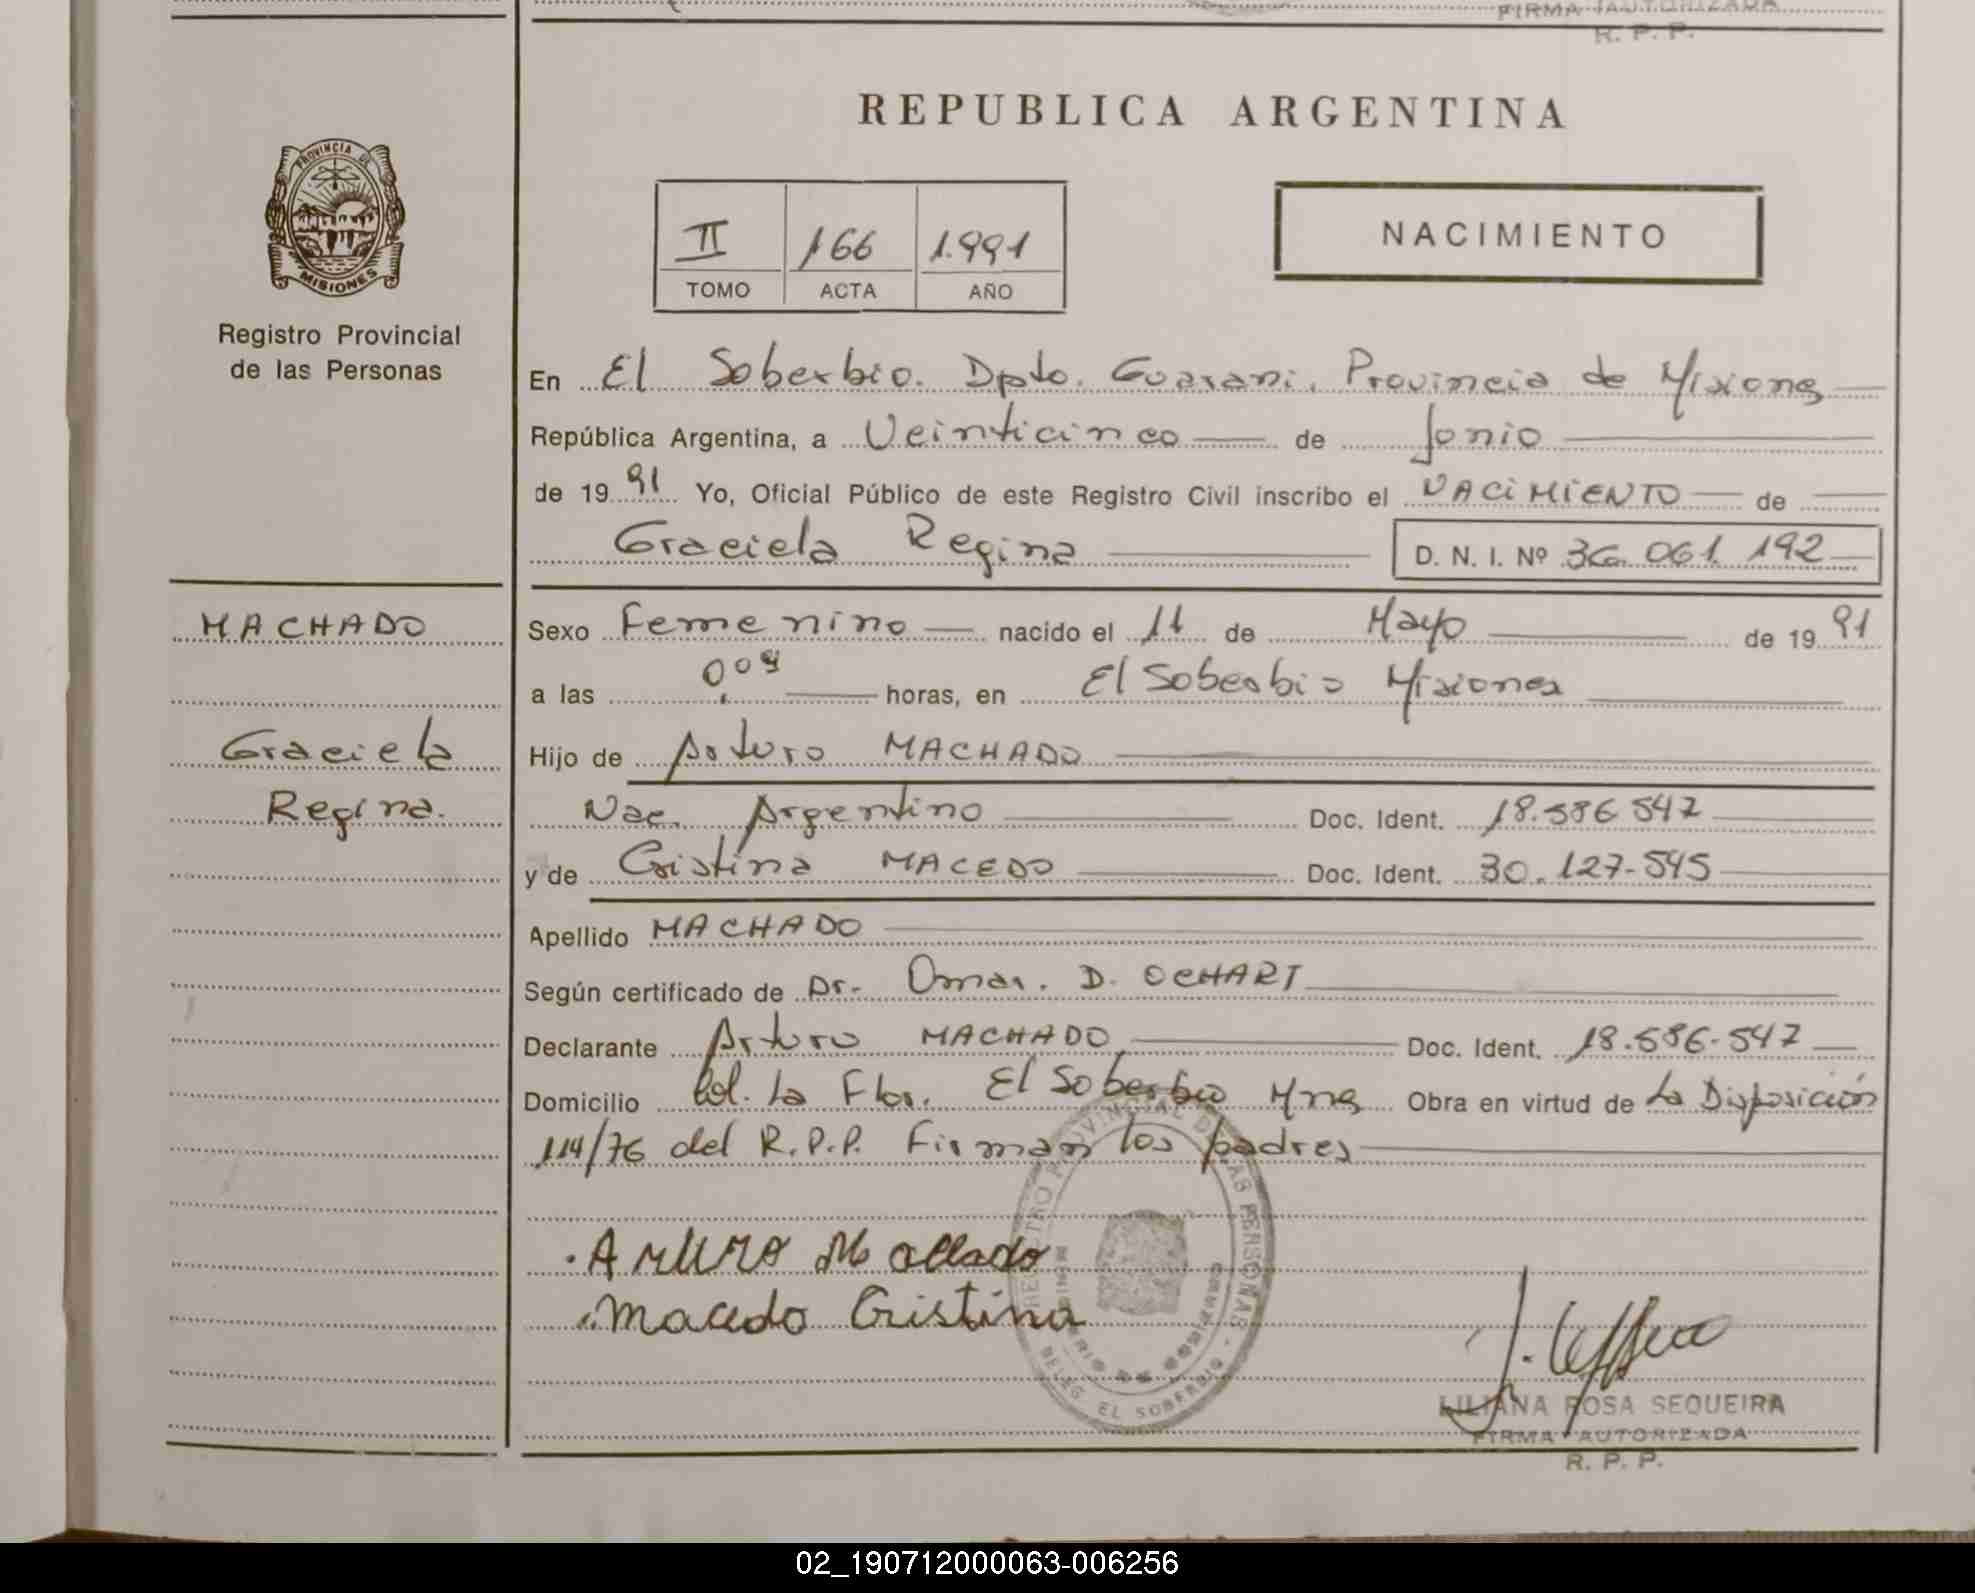 FIRMA AUTORIZADA
R. P. P.
REPUBLICA ARGENTINA
PROVINCIA DE
MISIONES
Registro Provincial
de las Personas
II 166 1.991
TOMO ACTA AÑO
NACIMIENTO
En El Soberbio. Dpto. Guarani. Provincia de Misiones
República Argentina, a Veinticinco de Junio
de 1991 Yo, Oficial Público de este Registro Civil inscribo el NACIMIENTO de
Graciela Regina D. N. I. Nº 36.061.192
MACHADO
Graciela
Regina.
Sexo Femenino nacido el 11 de Mayo de 1991
a las horas, en El Soberbio Misiones
Hijo de Arturo MACHADO
Nac. Argentino Doc. Ident. 18.586.547
y de Cristina MACEDO Doc. Ident. 30.127.545
Apellido MACHADO
Según certificado de Dr. Omar. D. OCHART
Declarante Arturo MACHADO Doc. Ident. 18.586.547
Domicilio Col. La Flor. El Soberbio Mnes Obra en virtud de La Disposición
114/76 del R.P.P. Firman los padres
Arturo Machado
Macedo Cristina
REGISTRO PROVINCIAL DE LAS PERSONAS
DELEG. EL SOBERBIO
LILIANA ROSA SEQUEIRA
FIRMA AUTORIZADA
R. P. P.
02_190712000063-006256